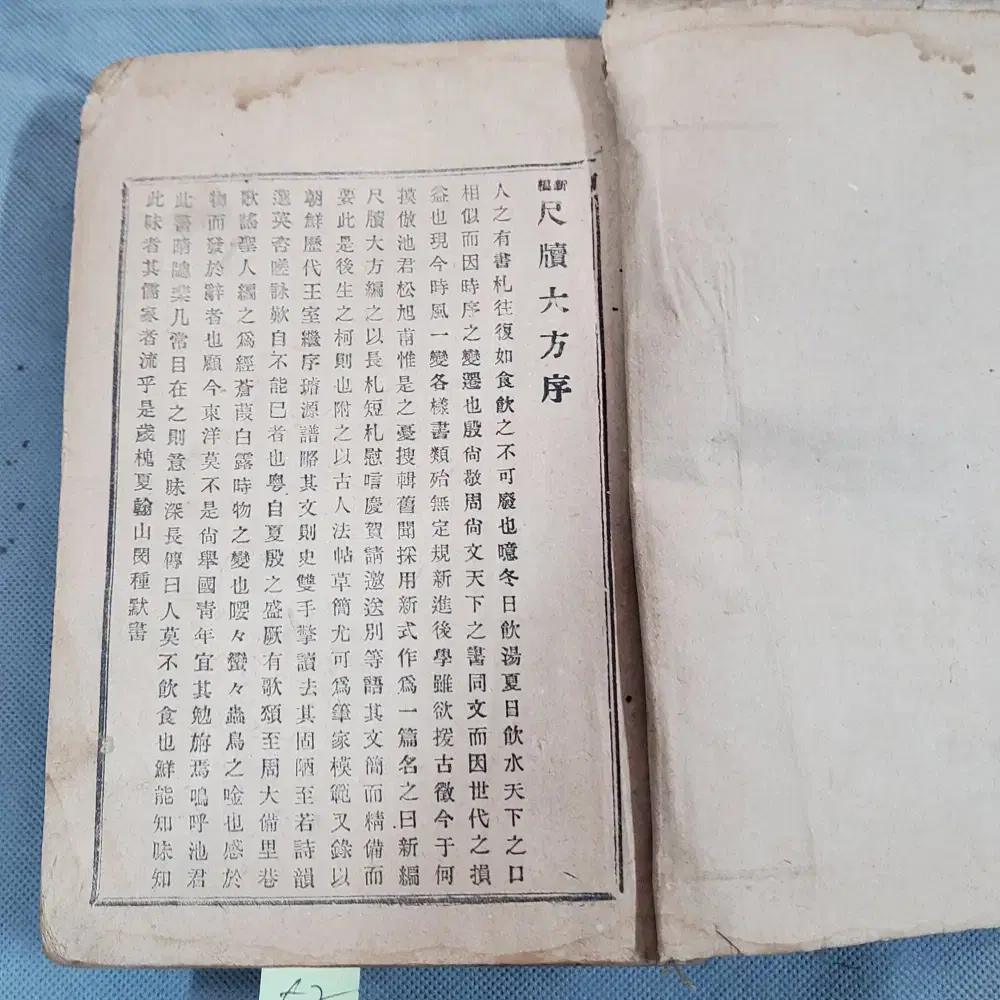 新編尺牘大方序
人之有書札往復如食飲之不可廢也噫冬日飮湯夏日飮水天下之口
相似而因時序之變遷也殷尙敬周尙文天下之書同文而因世代之損
益也現今時風一變各樣書類殆無定規新進後學雖欲援古徵今于何
摸倣池君松旭甫惟是之憂搜輯舊聞採用新式作爲一篇名之曰新編
尺牘大方編之以長札短札慰唁慶賀請邀送別等語其文簡而精備而
要此是後生之柯則也附之以古人法帖草簡尤可爲筆家模範又錄以
朝鮮歷代王室繼序璿源譜略其文則史雙手擎讀去其固陋至若詩韻
選英咨嗟詠歎自不能已者也粤自夏殷之盛厥有歌頌至周大備里巷
歌謠聖人編之爲經蒼葭白露時物之變也喓々蠻々蟲鳥之唫也感於
物而發於辭者也顧今東洋莫不是尙舉國靑年宜其勉旃焉嗚呼池君
此書牖牕棐几常目在之則意味深長傳曰人莫不飮食也鮮能知味知
此味者其儒家者流乎是歲槐夏翰山閔種默書
52